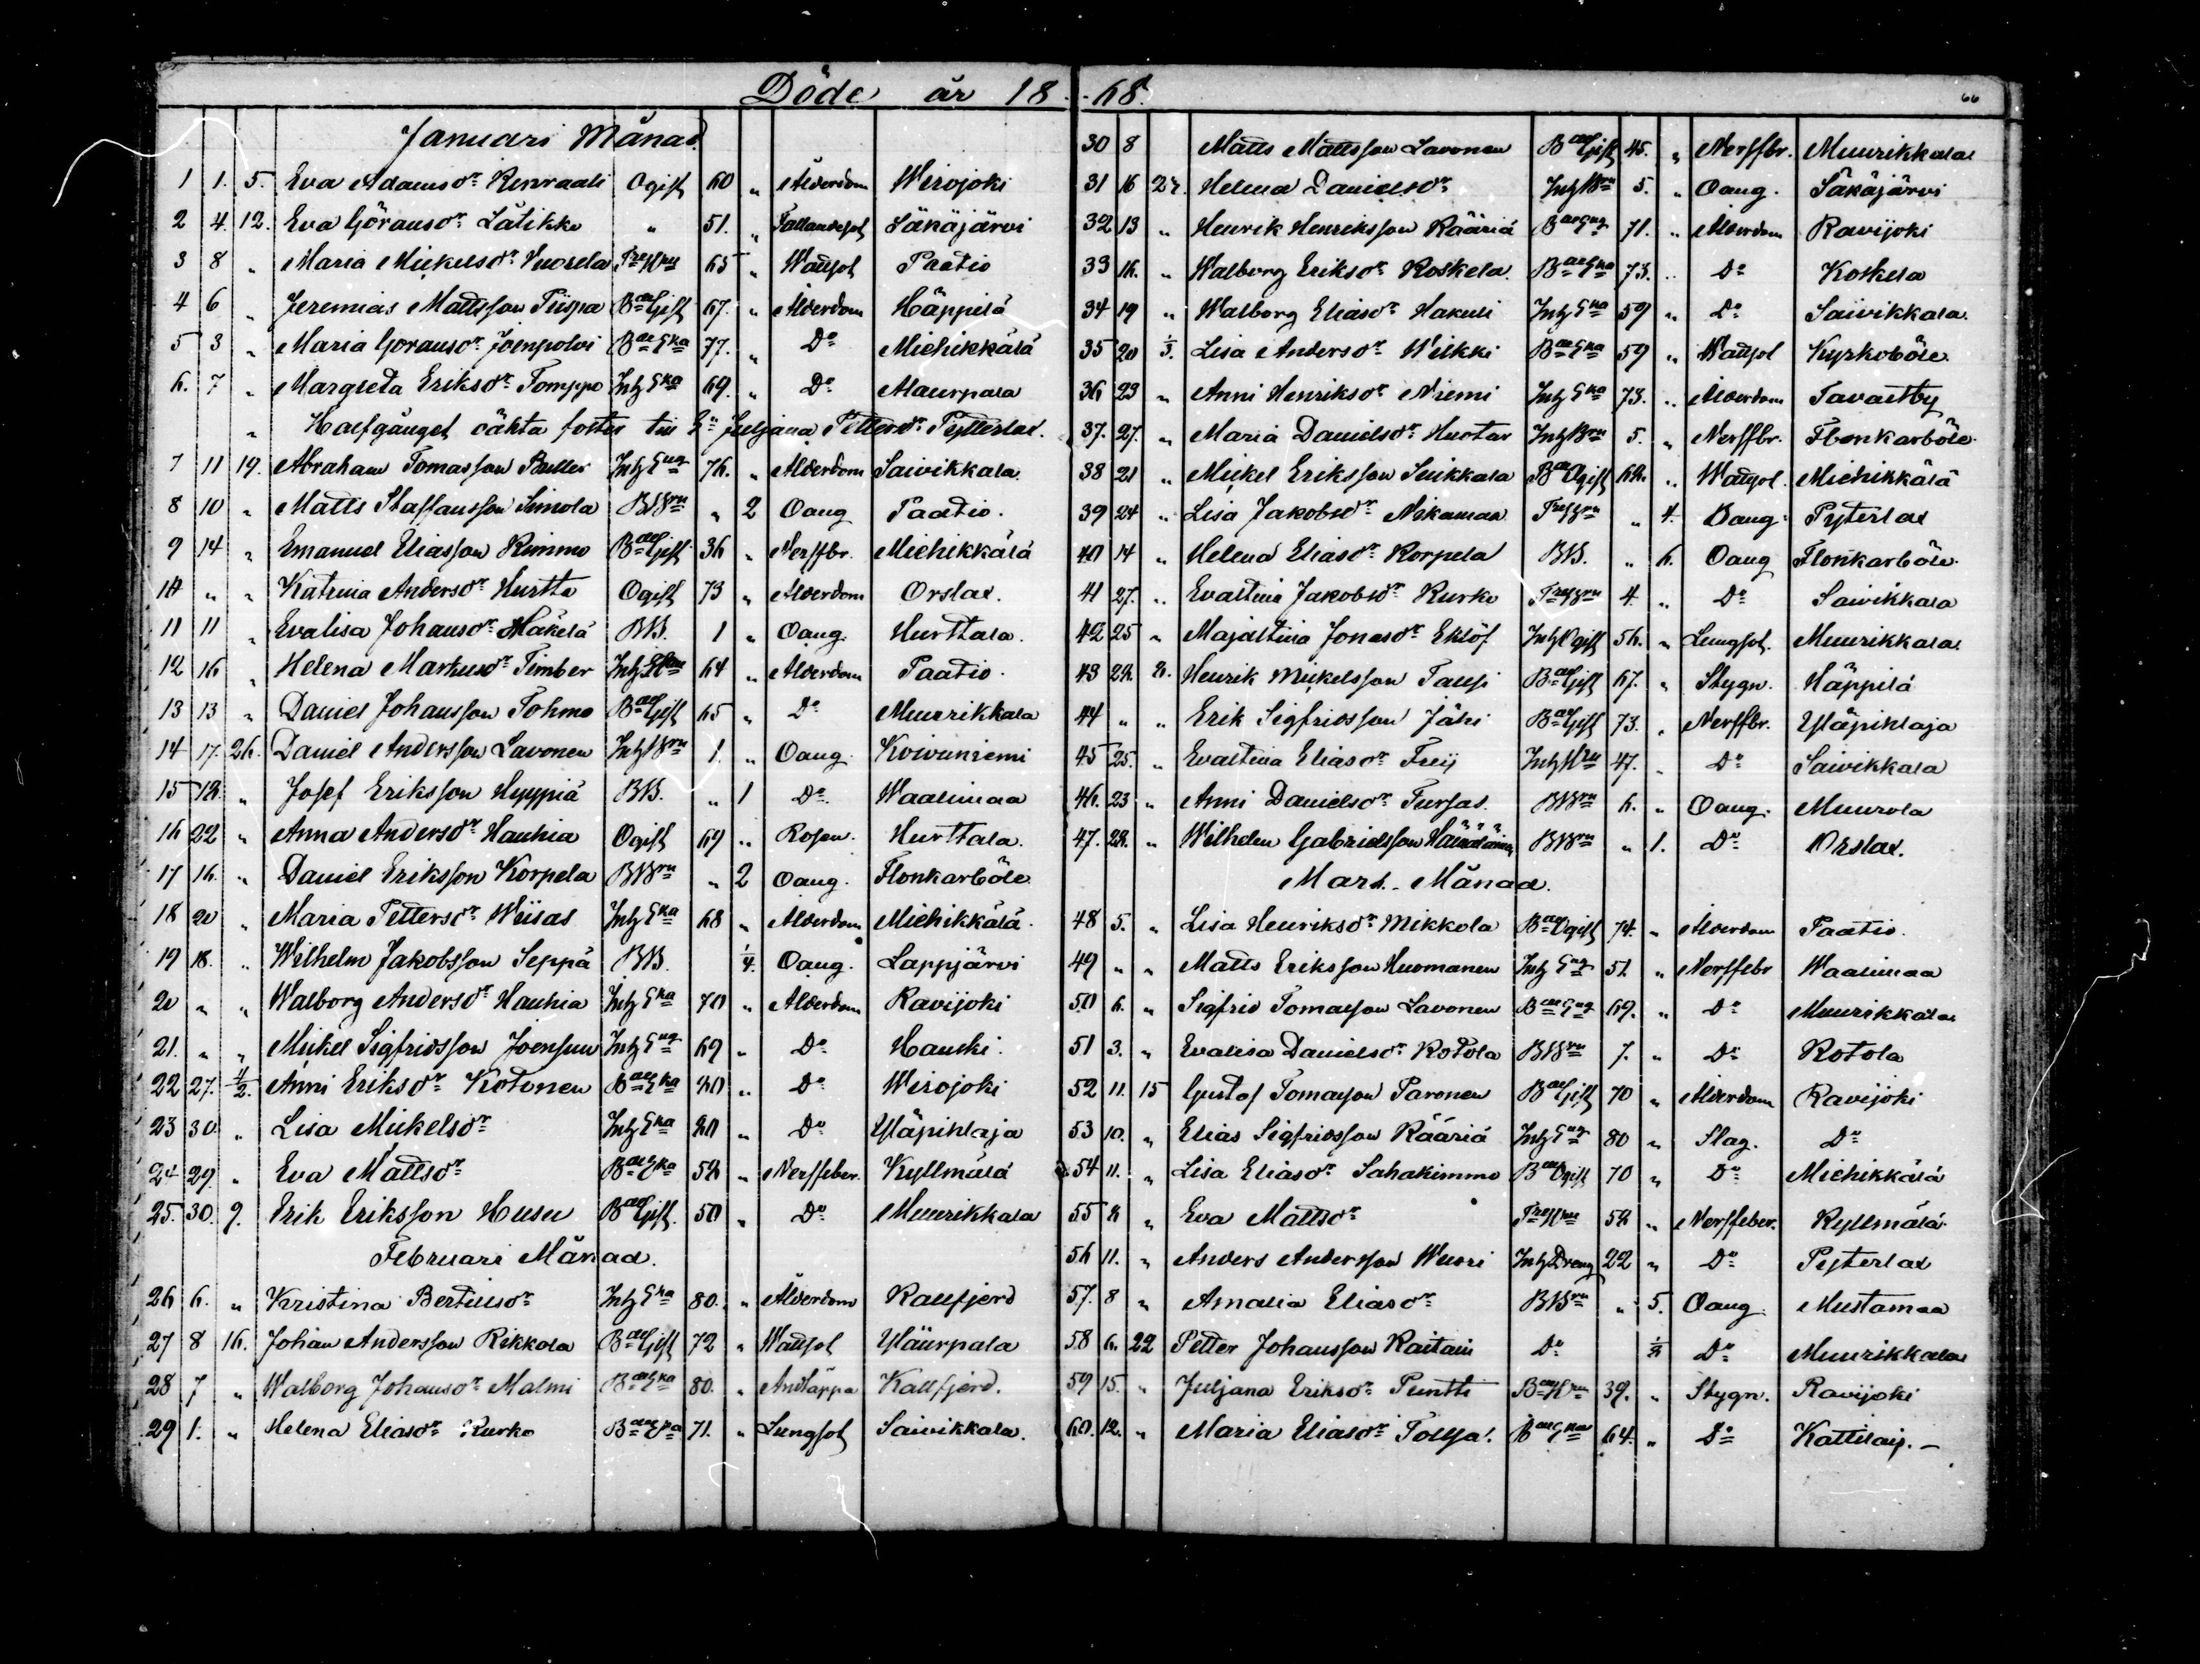 Döde år 1868.
66
Januari Månad.
1 1. 5. Eva Adamsdr Kinraali Ogift 60 " Ålderdom Wirojoki
2 4. 12. Eva Göransdr Lätikko " 51. " Fallandesot Säkäjärvi
3 8 " Maria Mickelsdr Vuorela 65 " Wattsot Paatio
4 6 " Jeremias Mattsson Tiispa Bae Gift 67. " Ålderdom Häppilä
5 3 " Maria Göransdr Joenpolvi Bae Eka 77. " Do Miehikkälä
6. 7 " Margreta Eriksdr Tomppo Inh Eka 69. " Do Alaurpala
" Halfgånget oäkta foster till Juljana Pettersdr Pytterlax.
7 11 19. Abraham Tomasson Inh Eng 76. " Ålderdom Saivikkala
8 10 " Matts Staffansson Simola BBrn " 2 Oang Paatio.
9 14 " Emanuel Eliasson Kimmo Bae Gift 36 " Nerffbr. Miehikkälä
10 " " Katrina Andersdr Hurtta Ogift 73 " Ålderdom Orslax.
11 11 " Evalisa Johansdr Mäkelä BB. 1 " Oang. Hurttala.
12 16 " Helena Markusdr Timber Inh 64 " Ålderdom Paatio.
13 13 " Daniel Johansson Tohmo Bae Gift 65 " Do Muurikkala
14 17. 26. Daniel Andersson Lavonen Inh Brn 1. " Oang. Koivuniemi
15 18. " Josef Eriksson Hyypiä BB. " 1 Do Waalimaa
16 22 " Anna Andersdr Hauhia Ogift 69 " Rosen. Hurttala.
17 16. " Daniel Eriksson Korpela BBrn " 2 Oang. Flonkarböle
18 20 " Maria Pettersdr Wiisas Inh Eka 68 " Ålderdom Miehikkälä.
19 18. " Wilhelm Jakobsson Seppä BB. 1/4. Oang. Lappjärvi
20 " " Walborg Andersdr Hauhia Inh Eka 70 " Ålderdom Ravijoki
21. " " Mickel Sigfridsson Joensuu Inh Eng 69 " Do Hauski.
22 27. 4/2. Anni Eriksdr Kotonen Bae Eka 60 " Do Wirojoki
23 30 " Lisa Mickelsdr Inh Eka 60 " Do Yläpihlaja
24 29. " Eva Mattsdr Bae Eka 56 " Nerffeber. Kyllmälä
25. 30. 9. Erik Eriksson Husu Bae Gift. 50 " Do Muurikkala
Februari Månad.
26 6. " Kristina Bertilsdr Inh Eka 80. " Ålderdom Kallfjerd
27 8 16. Johan Andersson Rikkola Bae Gift 72 " Wattsot Yläurpala
28 7 " Walborg Johansdr Malmi Bae Eka 80. " Andtäppa Kallfjerd.
29 1. " Helena Eliasdr Kurko Bae Eka 71. " Lungsot Saivikkala.
30 8 Matts Mattsson Lavonen Bae Gift 45. " Nerffbr. Muurikkala
31 16 Helena Danielsdr Inh Brn 5. " Oang. Säkäjärvi
32 13 " Henrik Henriksson Rääriä Bae Eng 71. " Ålderdom Ravijoki
33 16. " Walborg Eriksdr Koskela Bae Eka 73. " Do Koskela
34 19 " Walborg Eliasdr Hakuli Inh Eka 59 " Do Saivikkala.
35 20 1/3. Lisa Andersdr Wilkki Bae Eka 59 " Wattsot Kyrkoböle.
36 23 " Anni Henriksdr Niemi Inh Eka 73. " Ålderdom Tavastby
37. 27. " Maria Danielsdr Huotar Inh Brn 5. " Nerffbr. Flonkarböle.
38 21 " Mickel Eriksson Suikkala Bae Ogift 66. " Wattsot. Miehikkälä
39 24 " Lisa Jakobsdr Nikamaa " 4. Oang. Pyterlax
40 14 " Helena Eliasdr Korpela BB. " 6. Oang Flonkarböle.
41 27. " Evastina Jakobsdr Kurko 4. " Do Saivikkala
42 25 " Majastina Jonasdr Eklöf Inh Ogift 56. " Lungsot. Muurikkala
43 28. Henrik Mickelsson Taussi Bae Gift 67. " Stygn. Häppilä
44 " " Erik Sigfridsson Jähi Bae Gift 73. " Nerffbr. Yläpihlaja
45 25. " Evastina Eliasdr Frey 47. " Do Saivikkala
46. 23 " Anni Danielsdr Tursas. BBrn 6. " Oang. Muurola
47. 28. " Wilhelm Gabrielsson BBrn " 1. Do Orslax.
Mars. Månad.
48 5. " Lisa Henriksdr Mikkola Bae Ogift 74. " Ålderdom Paatio.
49 " " Matts Eriksson Huomanen Inh Eng 51. " Nerffebr Waalimaa
50 6. " Sigfrid Tomasson Lavonen Bae Eng 69. " Do Muurikkala
51 3. " Evalisa Danielsdr Kotola BBrn 7. " Do Kotola
52 11. 15 Gustaf Tomasson Paronen Bae Gift 70 " Ålderdom Ravijoki
53 10. " Elias Sigfridsson Rääriä Inh Eng 80 " Slag. Do
54 11. " Lisa Eliasdr Sahakimmo Bae Ogift 70 " Do Miehikkälä
55 8 " Eva Mattsdr 56 " Nerffeber. Kyllmälä
56 11. " Anders Andersson Wuori Inh Dreng 22 " Do Pyterlax
57. 8 " Amalia Eliasdr BBrn " 5. Oang. Mustamaa
58 6. 22 Petter Johansson Raitain Do Do Muurikkala
59 15. " Juljana Eriksdr Puntti 39. " Stygn. Ravijoki
60. 12. " Maria Eliasdr Bae Eka 64. " Do Kattilaip.